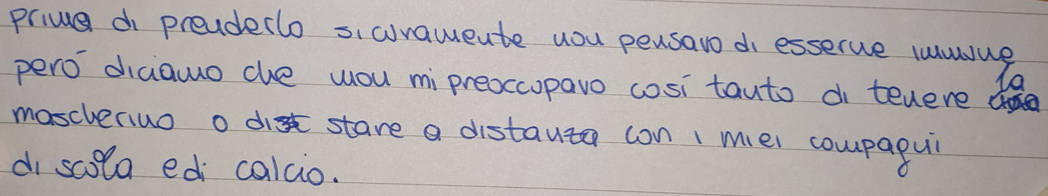 prima di prenderlo sicuramente non pensavo di esserne immune
però diciamo che non mi preoccupavo così tanto di tenere la
mascherina o di stare a distanza con i miei compagni
di scola e di calcio.